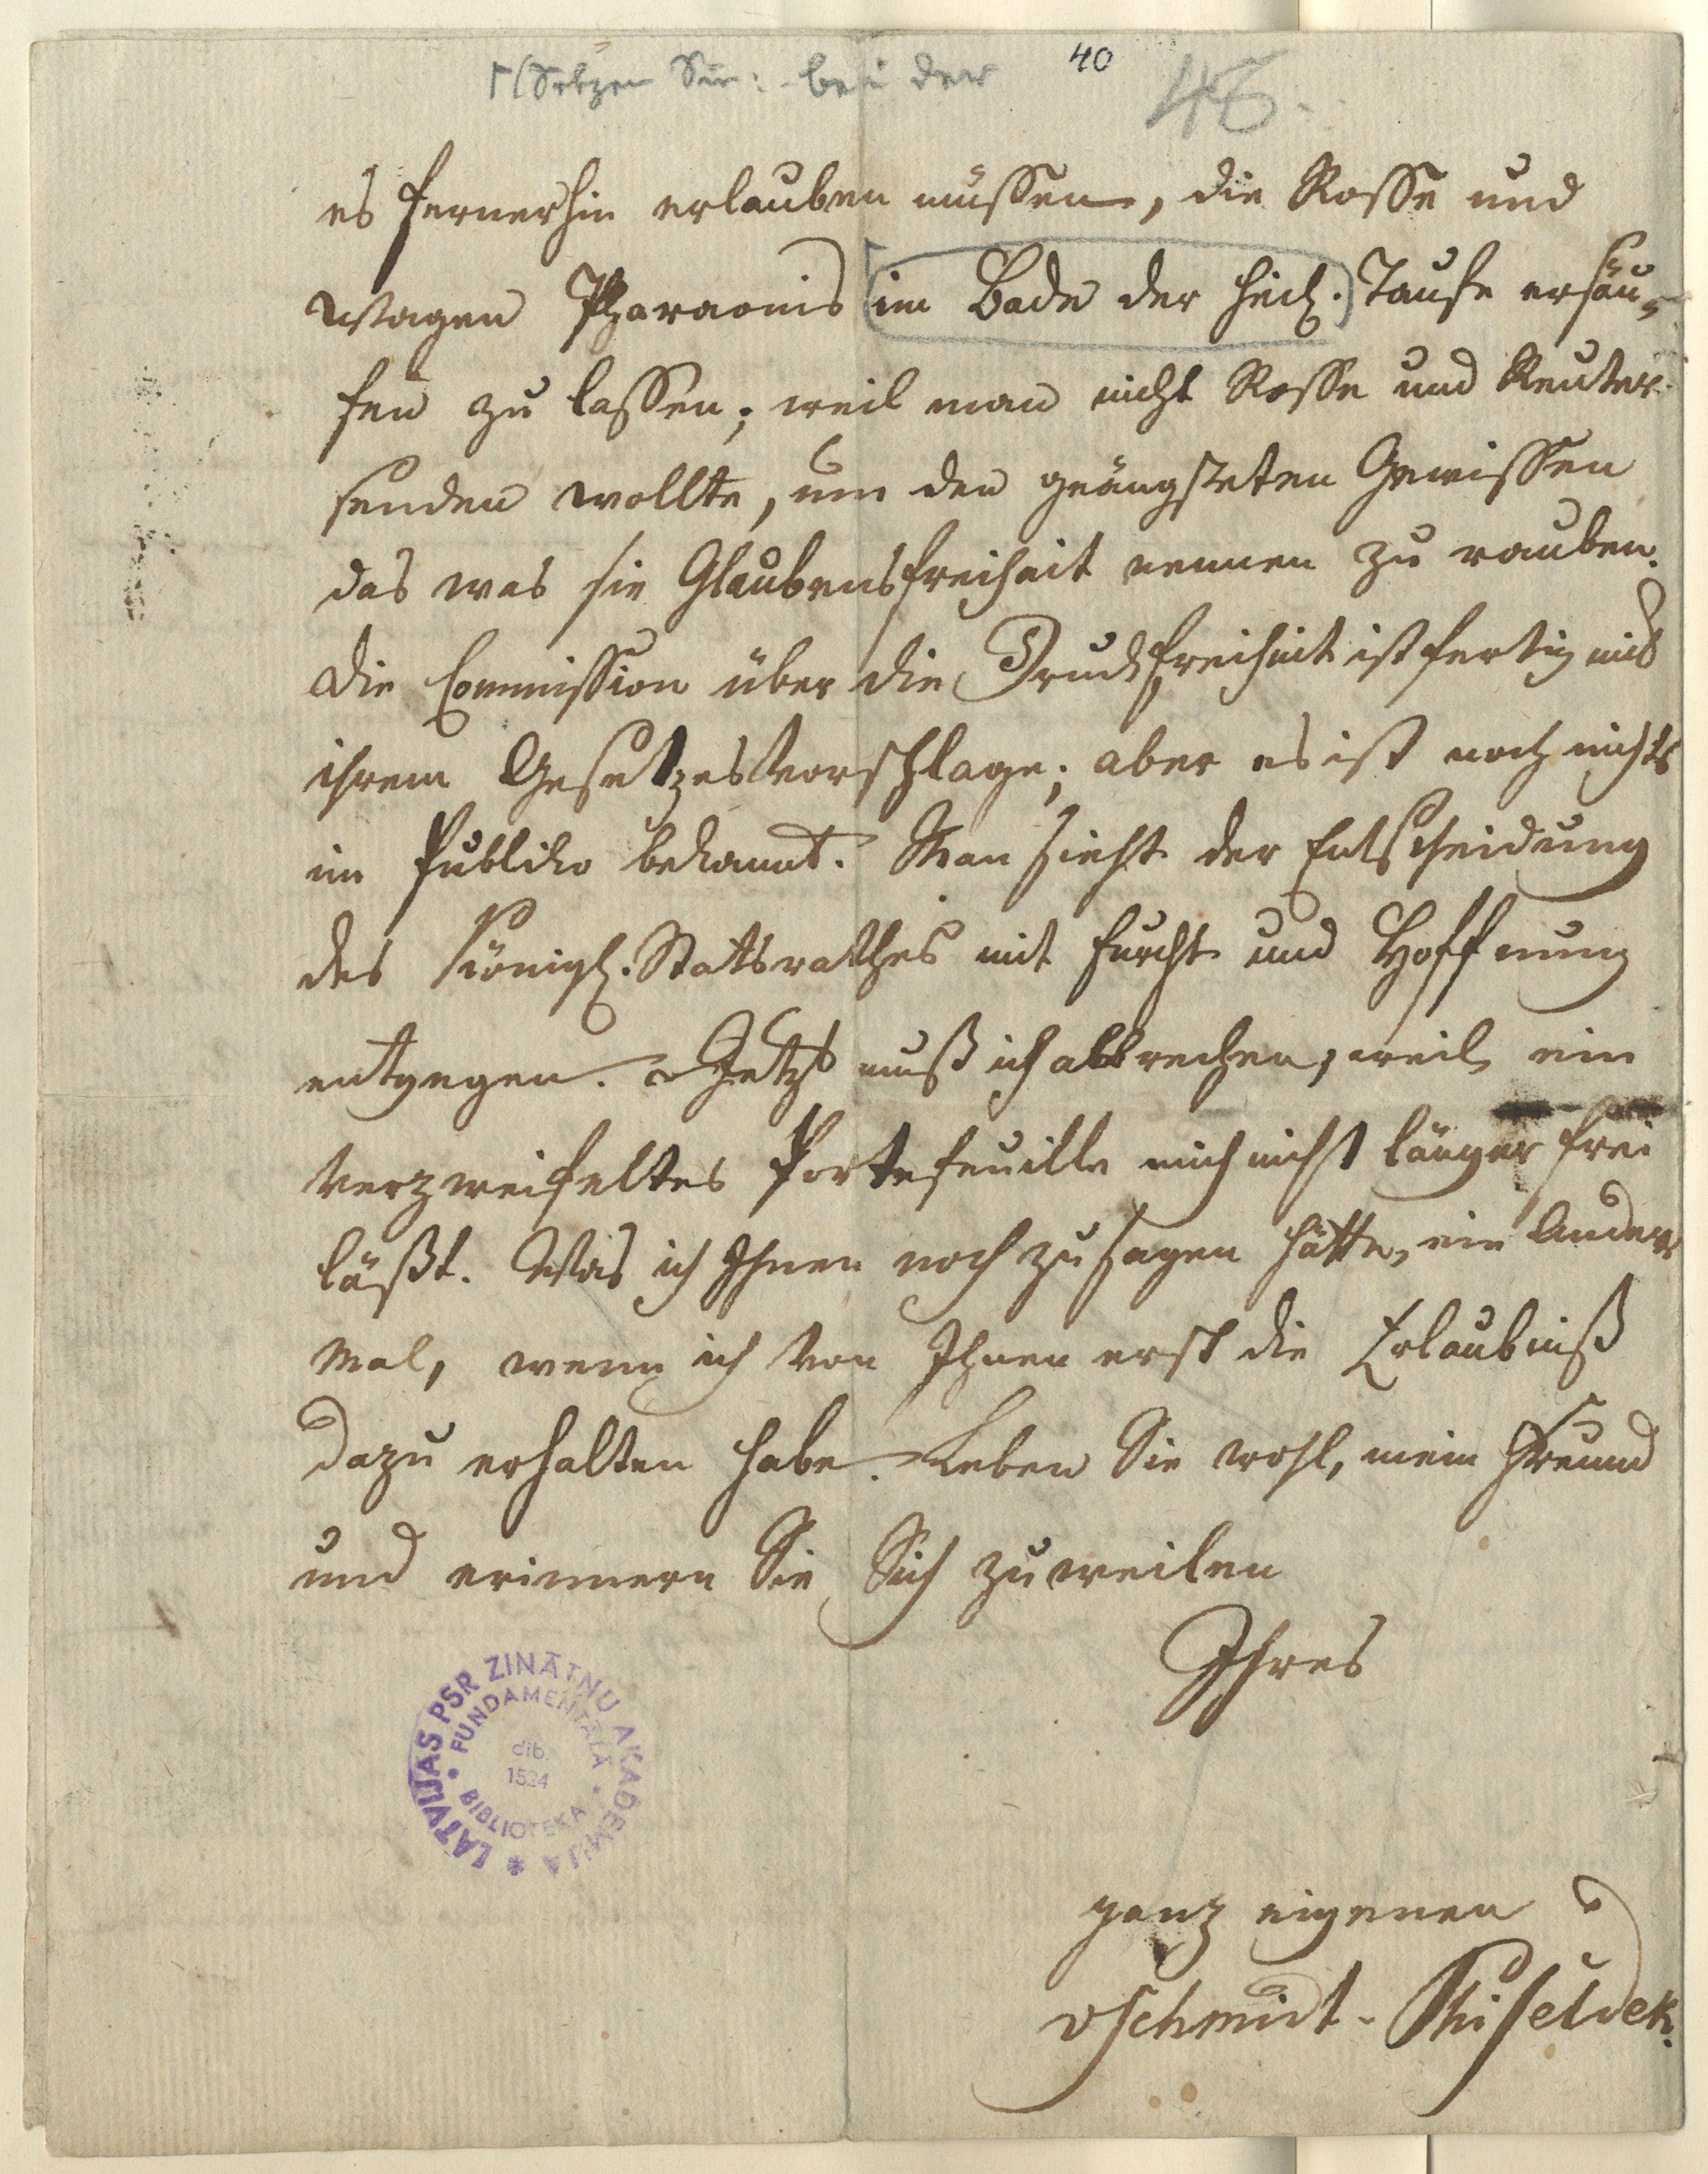 40
Setzen Sie: bei der
48.
es fernerhin erlauben müssen, die Rosse und
Wagen Pharaonis im Bade der heil. Taufe ersäu-
fen zu lassen; weil man nicht Rosse und Reuter
senden wollte, um den geängsteten Gewissen
das was sie Glaubensfreiheit nennen zu rauben.
Die Commission über die Druckfreiheit ist fertig mit
ihrem Gesetzesvorschlage; aber es ist noch nichts
im Publiko bekannt. Man sieht der Entscheidung
des Königl. Statsrathes mit Furcht und Hoffnung
entgegen. Jetzt muß ich abbrechen, weil ein
verzweifeltes Portefeuille mich nicht länger frei
läßt. Was ich Ihnen noch zu sagen hätte, ein Ander
Mal, wenn ich von Ihnen erst die Erlaubniß
dazu erhalten habe. Leben Sie wohl, mein Freund
und erinnern Sie Sich zuweilen
Ihres
ganz eigenen
vSchmidt-Phiseldek.
LATVIJAS PSR ZINĀTŅU AKADEMIJA
FUNDAMENTĀLĀ BIBLIOTEKA
dib.
1524